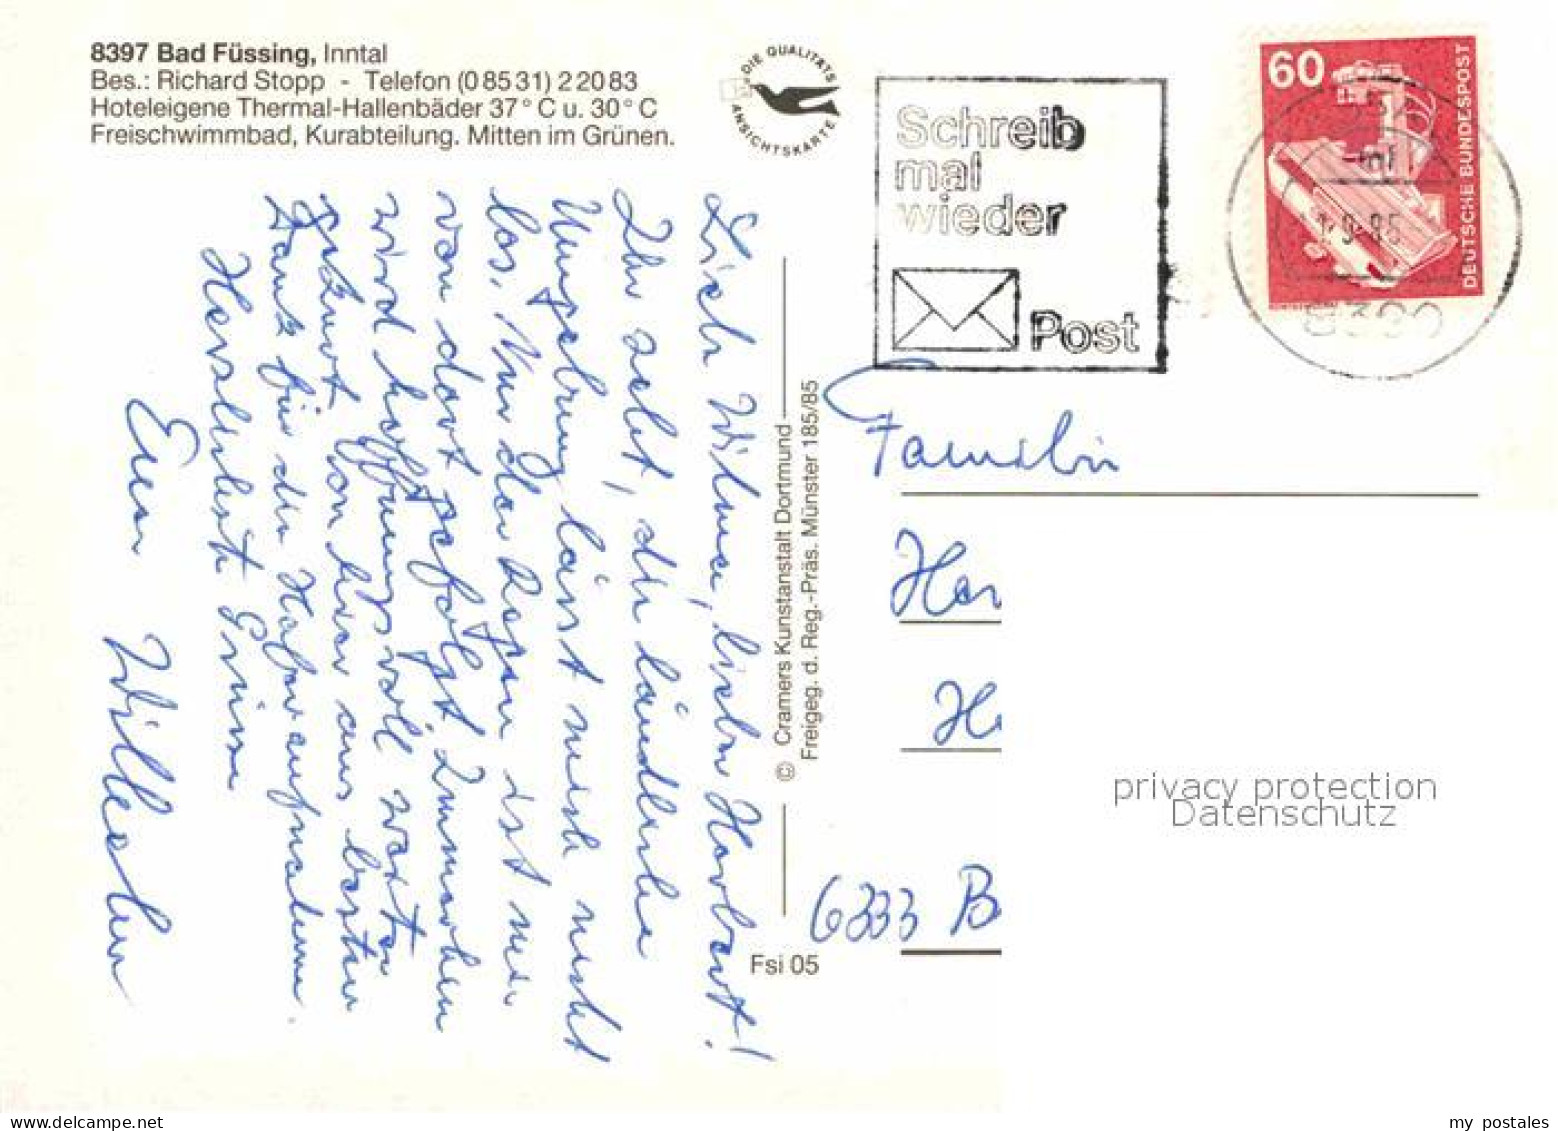 8397 Bad Füssing, Inntal
Bes.: Richard Stopp - Telefon (0 85 31) 2 20 83
Hoteleigene Thermal-Hallenbäder 37° C u. 30° C
Freischwimmbad, Kurabteilung. Mitten im Grünen.
DIE QUALITÄTS
ANSICHTSKARTE
Schreib
mal
wieder
Post
60
DEUTSCHE BUNDESPOST
Liebe Wilma, lieber Herbert!
Ihr seht, die ländliche
Umgebung lässt mich nicht
los. Nur der Regen ist mir
von dort gefolgt. Immerhin
wird hoffnungsvoll weiter
gekurt. Von hier aus besten
Dank für die Hofaufnahmen.
Herzlichst Grüsse
Euer
© Cramers Kunstanstalt Dortmund
Freigeg. d. Reg.-Präs. Münster 185/85
Fsi 05
Familie
6333 B
privacy protection
Datenschutz
my postales